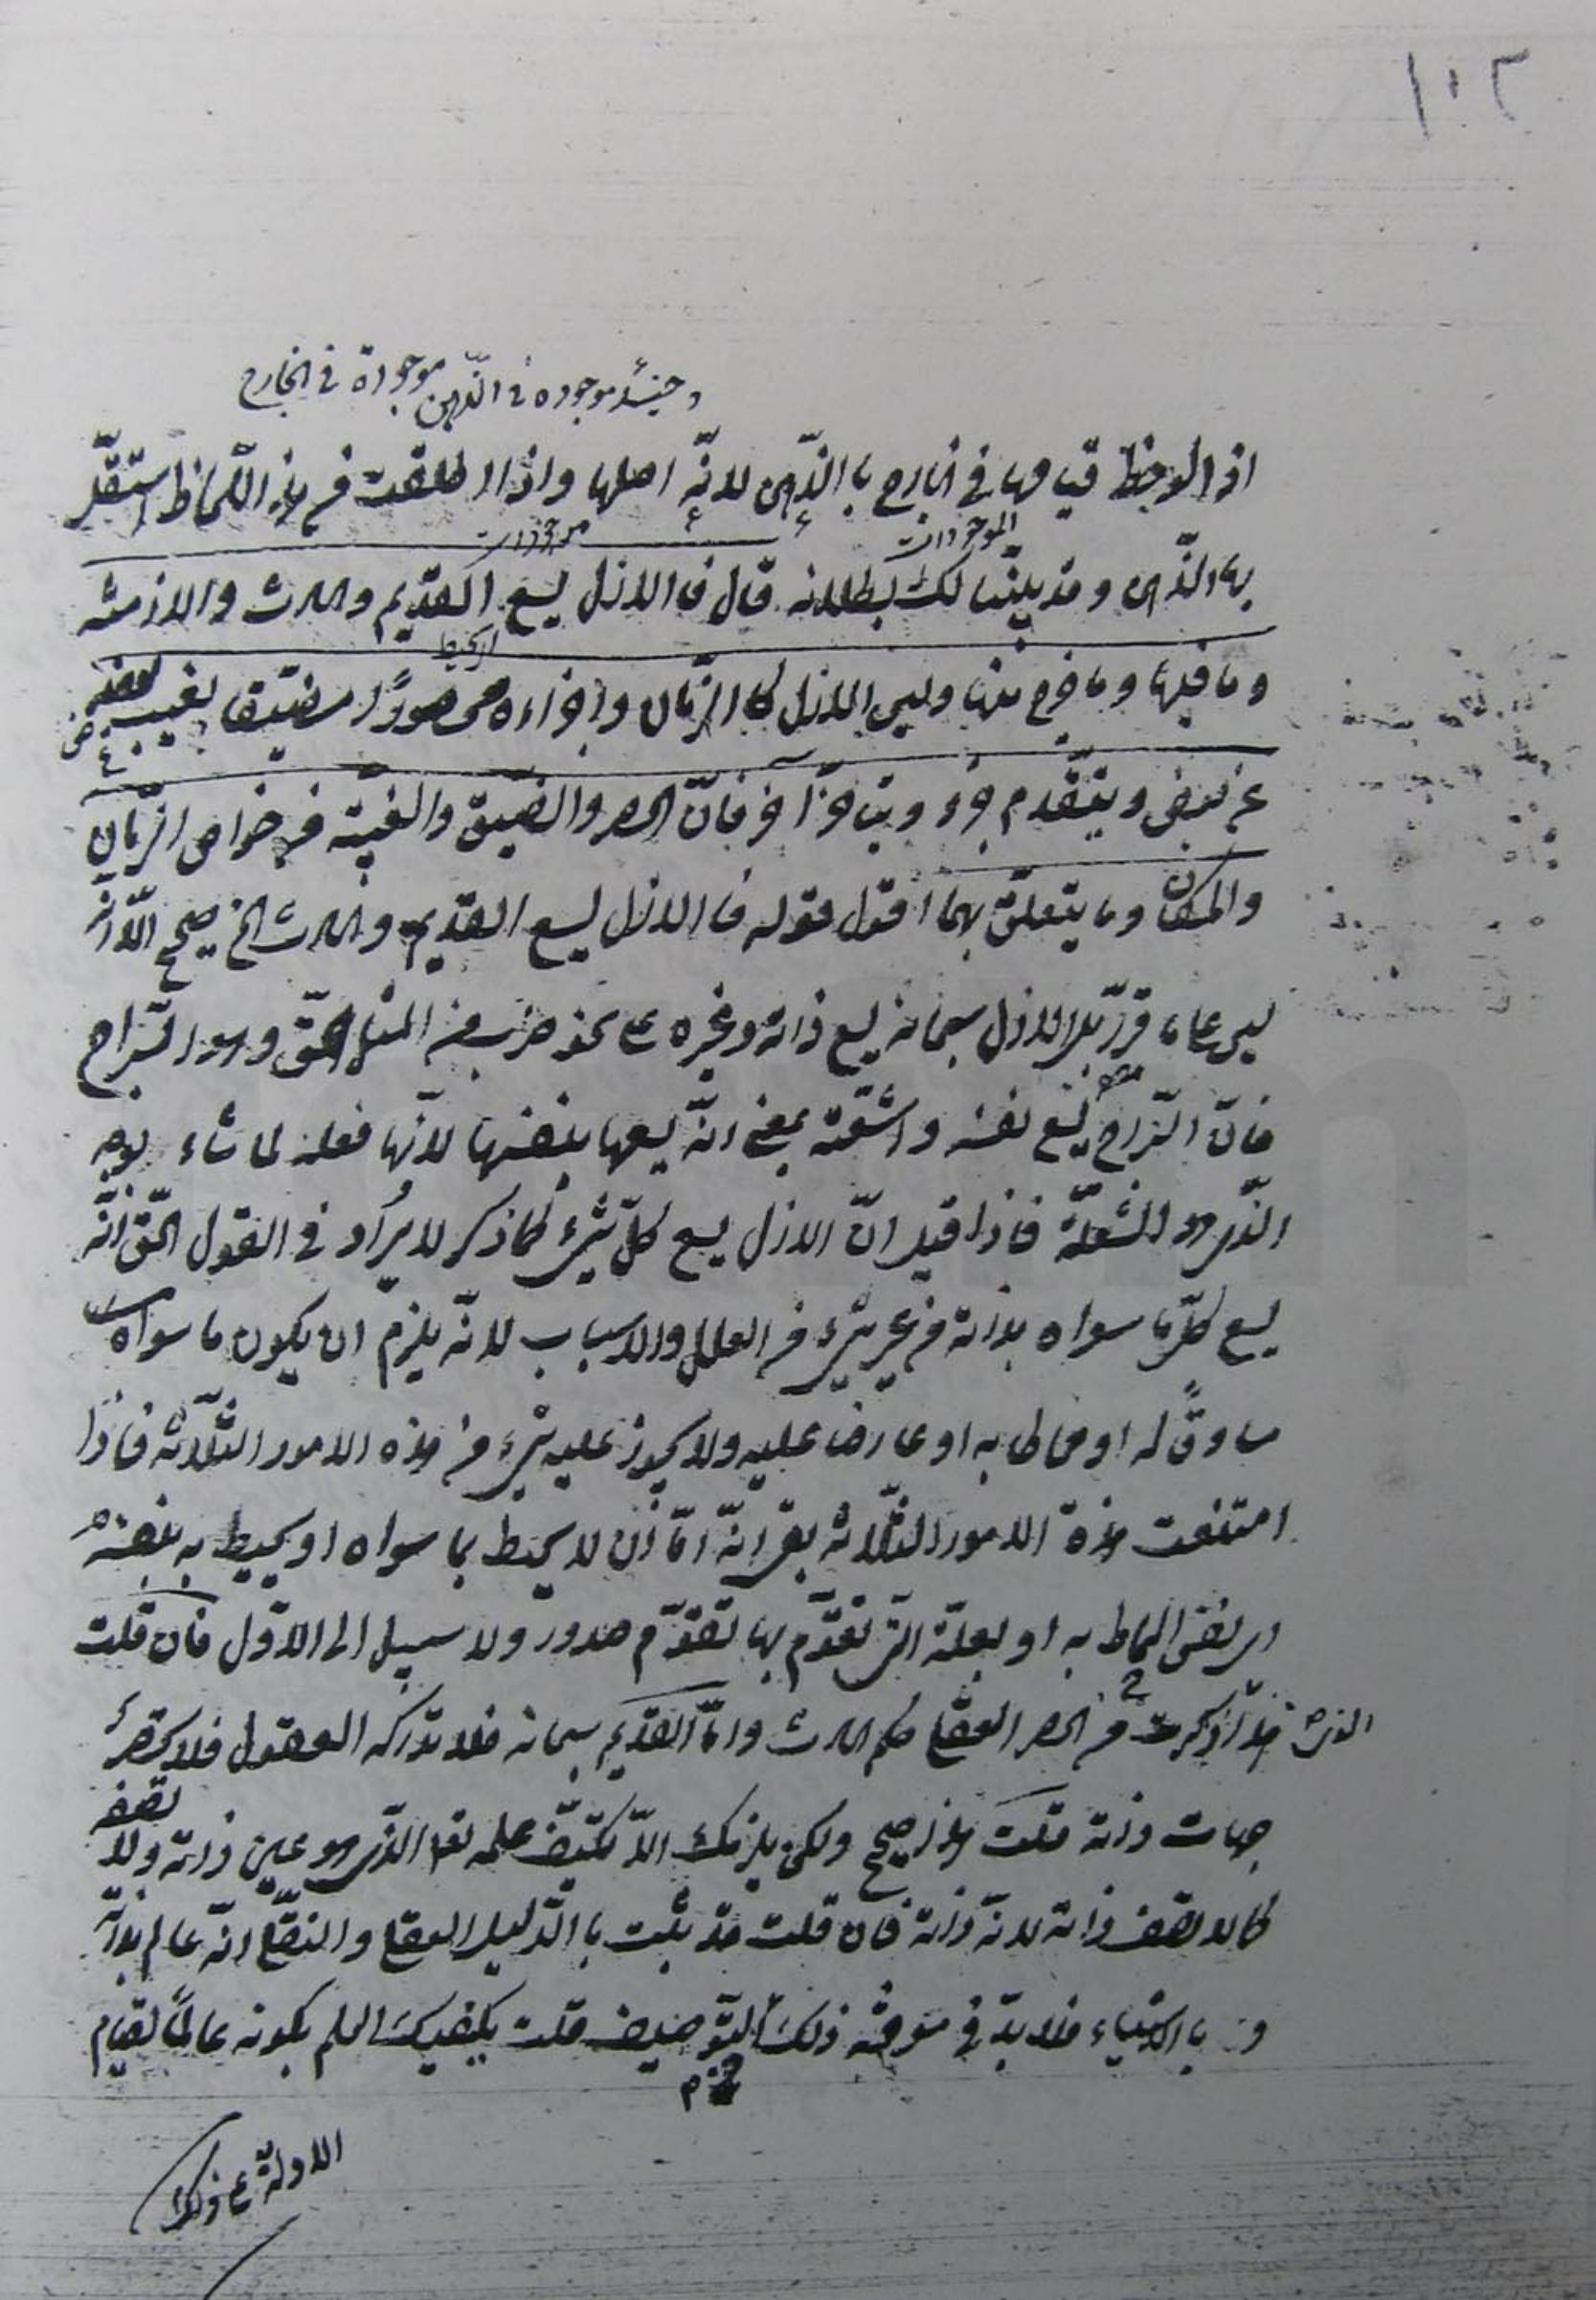 ١٠٢
و حينئذ موجوده في الذّهن موجودة في الخارج
اذا لوحظ قيامها في الخارج بالذّهن لانّه اصلها واذا اطلقت في هذا اللّحاظ استقلّ
الموجودات موجودات
بها الذّهن وقد بيّنّا لك بطلانه قال فالازل يسع القديم والحادث والازمنه
وما فيها وما خرج عنها وليس الازل كالزّمان واجزاءه محصورًا مضيّقا يغيب بعضه
عن بعض ويتقدم جزء ويتاخّر آخر فانّ الحصر والضيق والغيبة من خواص الزّمان
والمكان وما يتعلّق بهما اقول قوله فالازل يسع القديم والحادث الخ صحيح الّا انّه
ليس على ما قرّر بل الازل سبحانه يسع ذاته وغيره على نحو ضرب من المثل الحقّ وهو السّراج
فانّ السّراج يسع نفسه واشعّته بمعنى انّه يسعها بنفسها لانّها فعله لما شاء بوجه
الذّى هو الشعلة فاذا قيل انّ الازل يسع كلّ شىء كما ذكر لا يُراد في القول الحقّ انّه
يسع كلّ ما سواه بذاته من غير شىء من العلل والاسباب لانّه يلزم ان يكون ما سواه
مساوقًا له او محاطا به او عارضا عليه ولا يجوز عليه شىء من هذه الامور الثّلاثة فاذا
امتنعت هذه الامور الثلاثه بقى انّه امّا ان لا يحيط بما سواه او يحيط به بنفسه
اى بنفس المحاط به او بعلّته الّتى تقوّم بها تقوّم صدور ولا سبيل الى الاوّل فان قلت
الذى ذكرت من الحصر العقلى حكم الحادث وامّا القديم سبحانه فلا تدركه العقول فلا تحصر
جهات ذاته قلت هذا صحيح ولكن يلزمك الّا تكيّف علمه تعالى الذّى هو عين ذاته ولا تصفه
كما لا تصف ذاته لانّه ذاته فان قلت قد ثبت بالدّليل العقلى والنقلى انّه عالم بذاته
و بالاشياء فلا بدّ في معرفته ذلك التّوصيف قلت يكفيك العلم بكونه عالمًا لقيام
الادلّة على ذلك